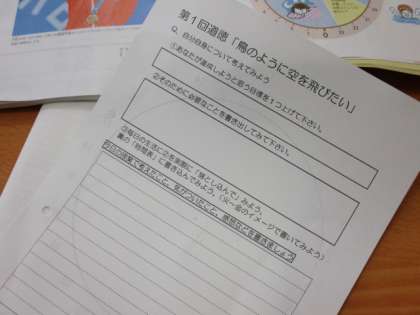 第1回道徳「鳥のように空を飛びたい」
Q. 自分自身について考えてみよう
①あなたが達成しようと思う目標を1つ上げて下さい。
②そのために必要なことを書き出してみて下さい。
③毎日の生活に②を実際に「落とし込んで」みよう。
裏の「時間表」に書き込んでみよう。（火～金のイメージで書いてみよう）
今日の授業で考えたこと、気がついたこと、感想などを書きましょう